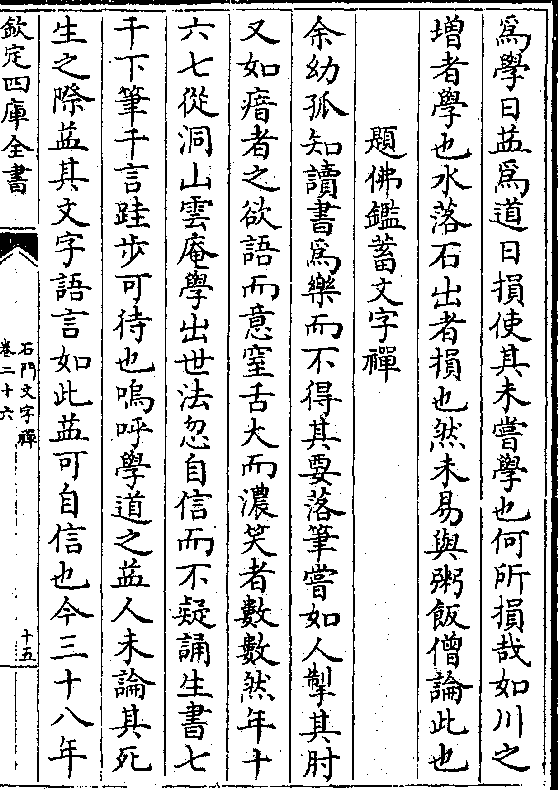 爲學日益爲道日損使其未嘗學也何所損哉如川之
増者學也水落石出者損也然未易與粥飯僧論此也
題佛鑑蓄文字禪
余幼孤知讀書爲樂而不得其要落筆嘗如人掣其肘
又如瘖者之欲語而意窒舌大而濃笑者數數然年十
六七從洞山雲庵學出世法忽自信而不疑誦生書七
千下筆千言跬步可待也嗚呼學道之益人未論其死
生之際益其文字語言如此益可自信也今三十八年
欽定四庫全書
石門文字禪
卷二十六
十五